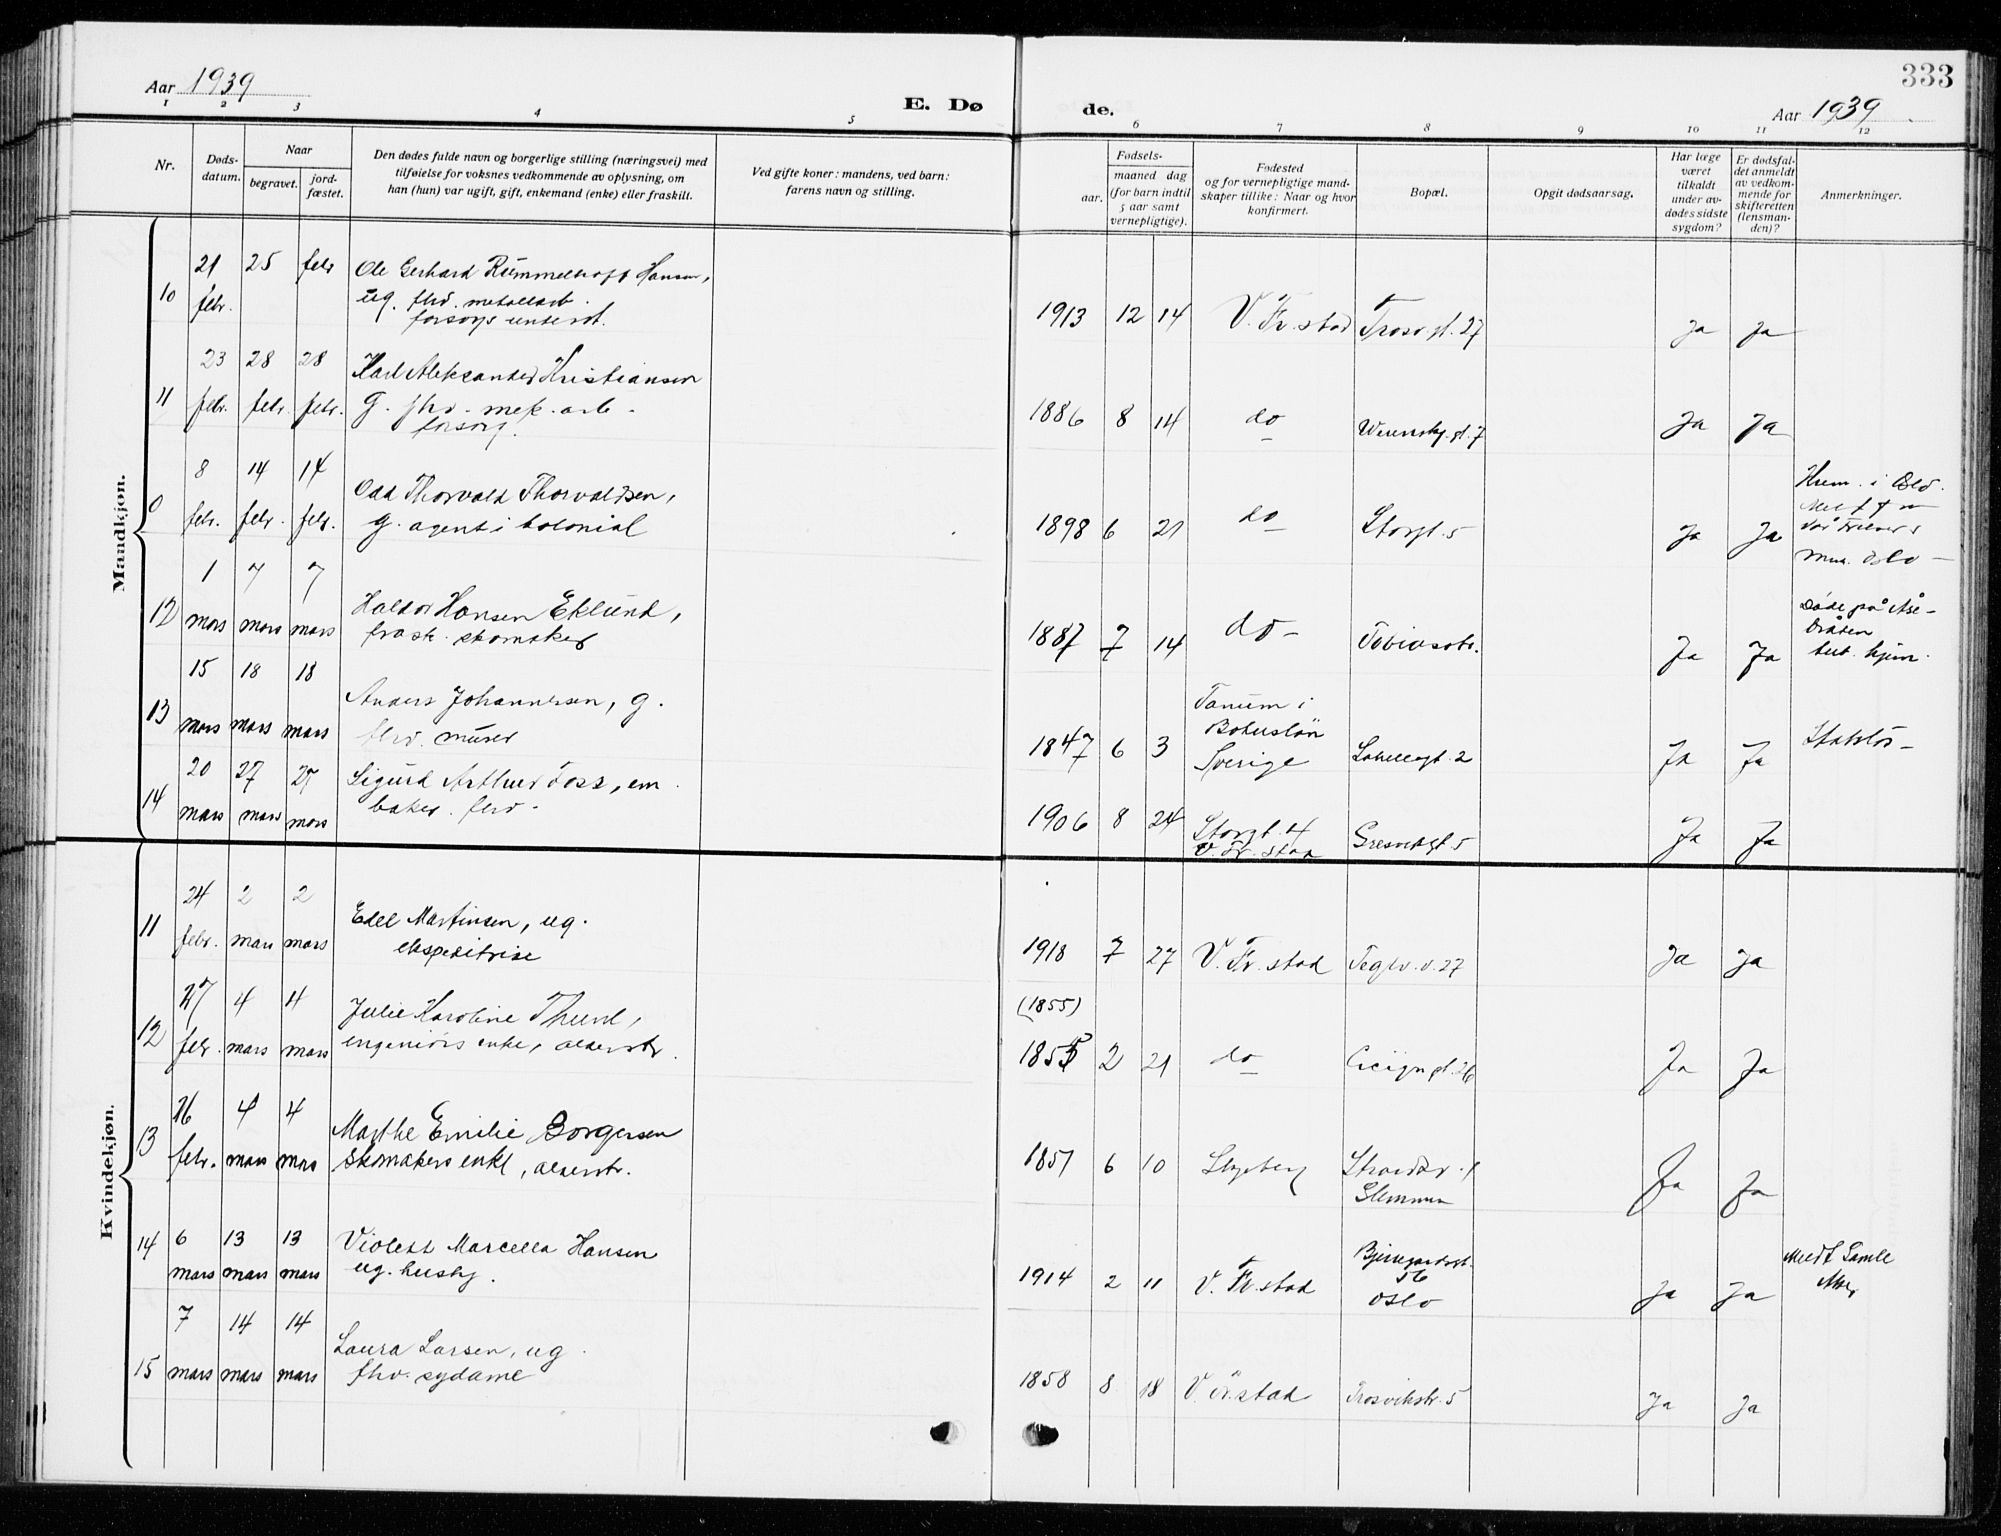 333
Aar 1939
E. Dø
de.
Aar 1939
1 2 3 4 5 6 7 8 9 10 11 12
Nr.
Døds-
datum.
Naar
begravet.
jord-
fæstet.
Den dødes fulde navn og borgerlige stilling (næringsvei) med
tilføielse for voksnes vedkommende av oplysning, om
han (hun) var ugift, gift, enkemand (enke) eller fraskilt.
Ved gifte koner: mandens, ved barn:
farens navn og stilling.
Fødsels-
aar.
maaned dag
(for barn indtil
5 aar samt
vernepligtige).
Fødested
og for vernepligtige mand-
skaper tillike: Naar og hvor
konfirmert.
Bopæl.
Opgit dødsaarsag.
Har læge
været
tilkaldt
under av-
dødes sidste
sygdom?
Er dødsfal-
det anmeldt
av vedkom-
mende for
skifteretten
(lensman-
den)?
Anmerkninger.
Mandkjøn.
10 21 febr. 25 febr
Ole Gerhard Rummelhoff Hansen,
ug. fhv. metallarb.
forsorgs underst.
1913 12 14 V. Fr.stad Trosvgt. 27 Ja Ja
11 23 febr. 28 febr. 28 febr.
Karl Aleksander Kristiansen
G. fhv. mek. arb.
forsorg.
1886 8 14 do Werenskj.gt. 7 Ja Ja
0 8 febr. 14 febr. 14 febr.
Odd Thorvald Thorvaldsen,
g. agent i kolonial
1898 6 21 do Storgt. 5 Ja Ja
12 1 mars 7 mars 7 mars
Haldor Hansen Eklund,
frask. skomaker
1887 7 14 do Tobiasbr. Ja Ja
Døde på Åse-
bråten
tub. hjem.
13 15 mars 18 mars 18 mars
Anders Johannesen, g.
fhv. murer
1847 6 3 Tanum i
Bohuslän
Sverige
Ja Ja Statslös
14 20 mars 27 mars 27 mars
Sigurd Arthur Foss, em.
baker. fhv.
1906 8 24 Storgt. 4
V. Fr. stad
Gresvikgt 5 Ja Ja
Kvindekjøn.
11 24 febr. 2 mars 2 mars
Edel Martinsen, ug.
ekspeditrise
1918 7 27 V. Fr. stad Teglv. v. 27 Ja Ja
12 27 febr. 4 mars 4 mars
Julie Karoline Thund,
ingeniörs enke, alderstr.
(1855)
1855 2 21 do Cicigngt. 26 Ja Ja
13 26 febr. 4 mars 4 mars
Marthe Emilie Borgersen
skomakers enke, alderstr.
1857 6 10 Skjeberg
Glemmen
Ja Ja
14 6 mars 13 mars 13 mars
Violett Marcella Hansen
ug. hushj.
1914 2 11 V. Fr.stad Bjerregardsgt.
56
Oslo
Ja Ja Medt Gamle
Aker
15 7 mars 14 mars 14 mars
Laura Larsen, ug.
fhv. sydame
1858 8 18 V. Fr.stad Trosvikstr. 5 Ja Ja